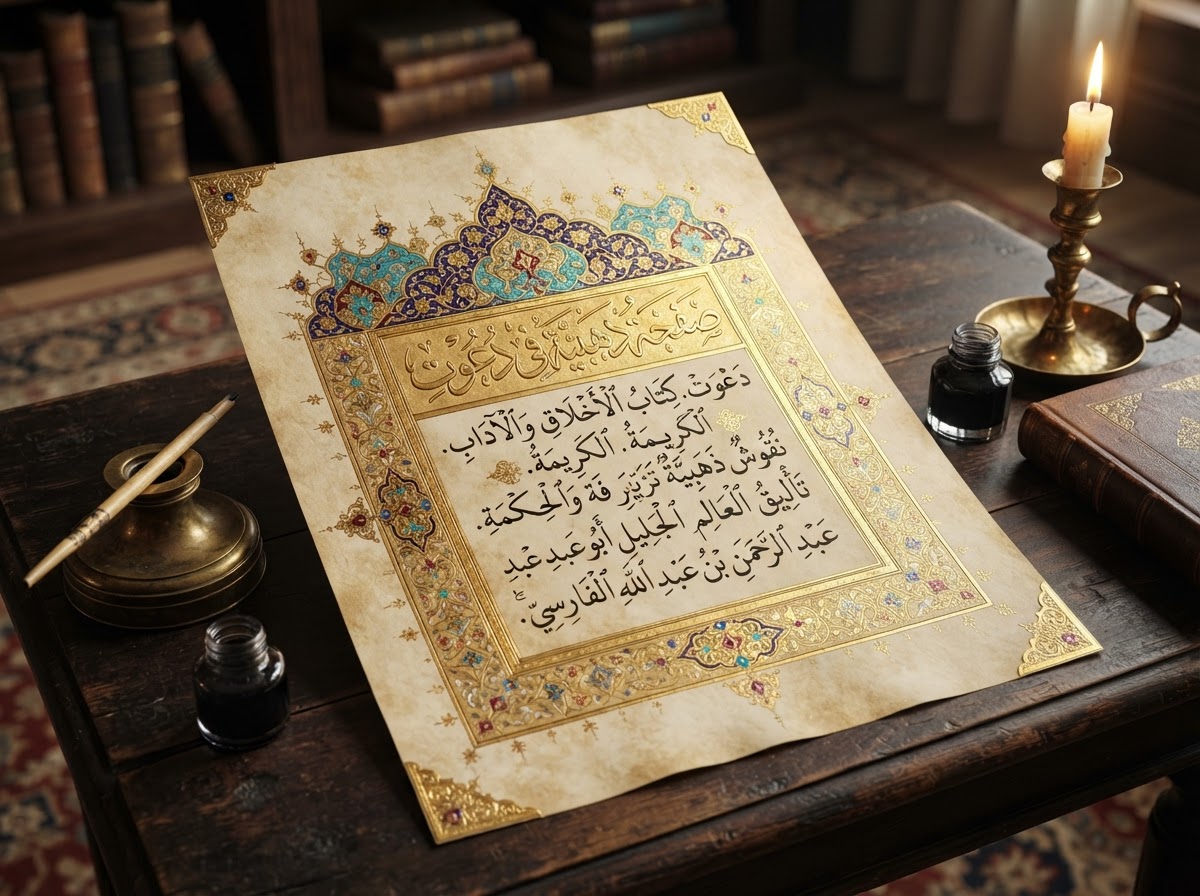 صَفْحَة ذَهَبِيَّة فِي دُعُوَتْ
دَعْوَتْ. كِتَابُ الْأَخْلَاقِ وَالْآدَابِ.
الْكَرِيمَةُ. الْكَرِيمَةُ.
نُقُوشٌ ذَهَبِيَّةٌ فَة وَالْحِكْمَةِ.
تَأْلِيقُ الْعَالِمِ الْجَلِيلِ أَبُو عَبدِ عَبْدِ
عَبْدِ الرَّحْمَنِ بْنُ عَبْدِ اللهِ الْفَارِسِيّ.